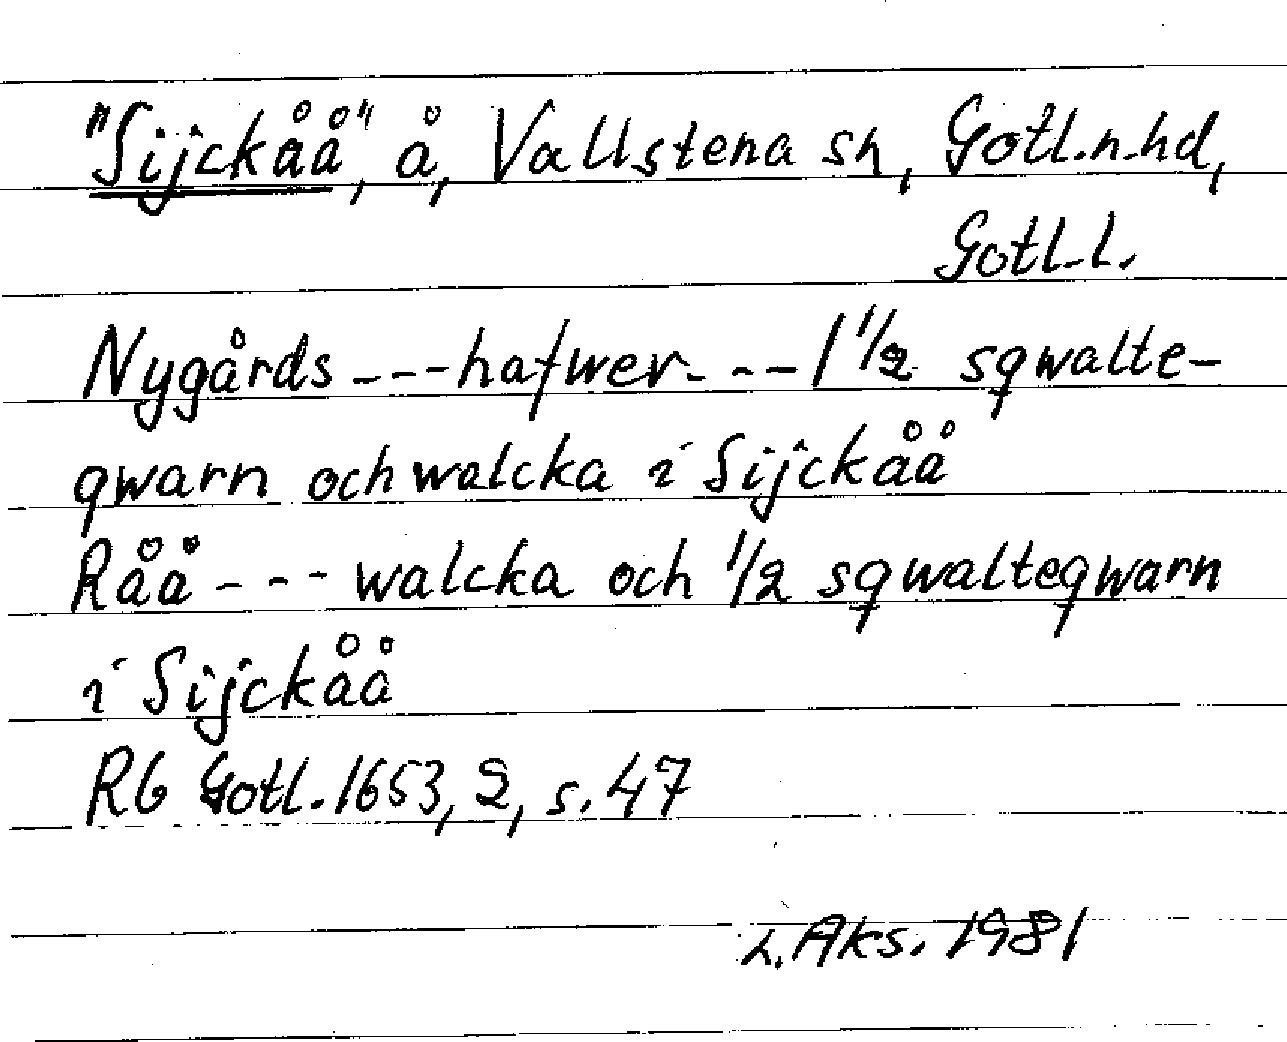 "Sijckåå", å, Vallstena sn, Gotl.n.hd,
Gotl.l.
Nygårds ---hafwer---1 1/2 sqwalte-
qwarn och walcka i Sijckåå
Råå --- walcka och 1/2 sqwalteqwarn
i Sijckåå
RG Gotl.1653, 2, s.47
L.Aks. 1981